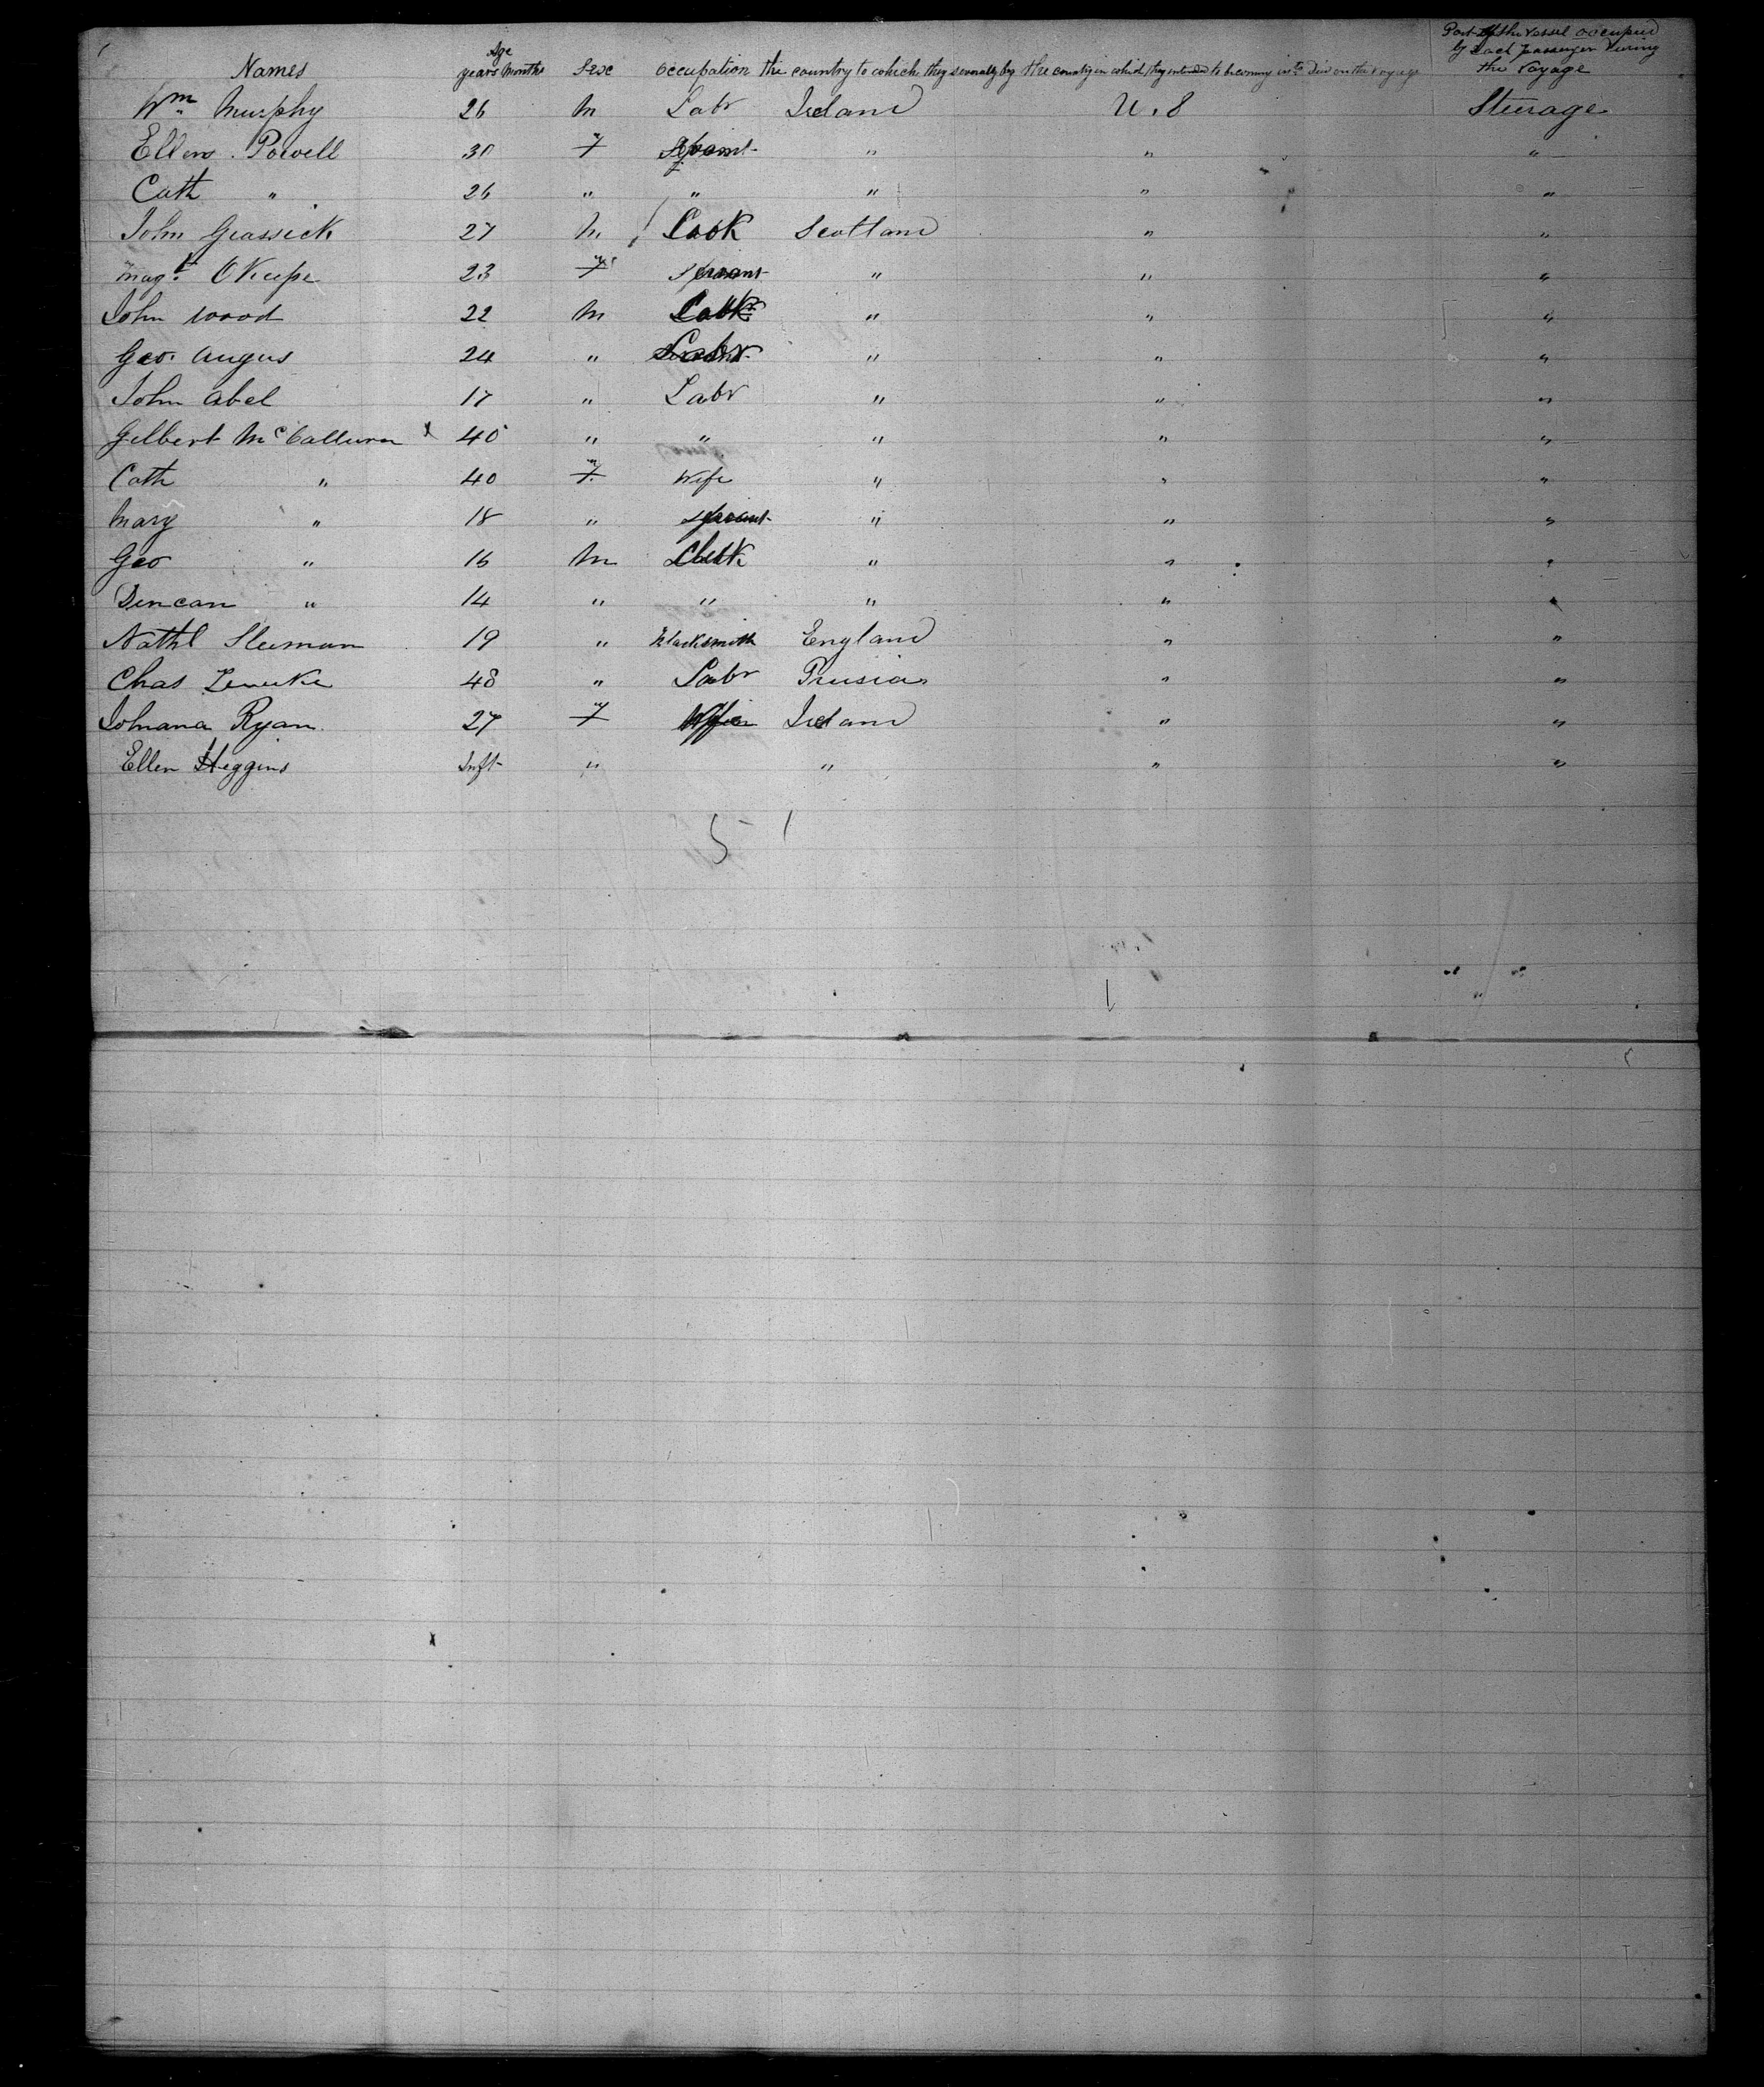 Part of the vessel occupied
by each passenger during
the voyage
Age
Names years months Sex occupation the country to which they severally the country in which they intended to becoming Died on the voyage
Wm Murphy 26 M Labr Ireland U.S Steerage
Ellen Powell 30 F Servant " " "
Cath " 26 " " " " "
John Grassick 27 M Cook Scotland " "
Magt 23 F Servant " " "
John Wood 22 M " " "
Geo. Angus 24 " Labr " " "
John Abel 17 " Labr " " "
Gilbert McCallum x 40 " " " " "
Cath " 40 F Wife " " "
Mary " 18 " Servant " " "
Geo " 16 M Clerk " " "
Duncan " 14 " " " " "
Nathl Sleeman 19 " Blacksmith England " "
Chas 48 " Labr Prusia " "
Johnana Ryan 27 F Wife Ireland " "
Ellen Heggins Inft " " " "
51